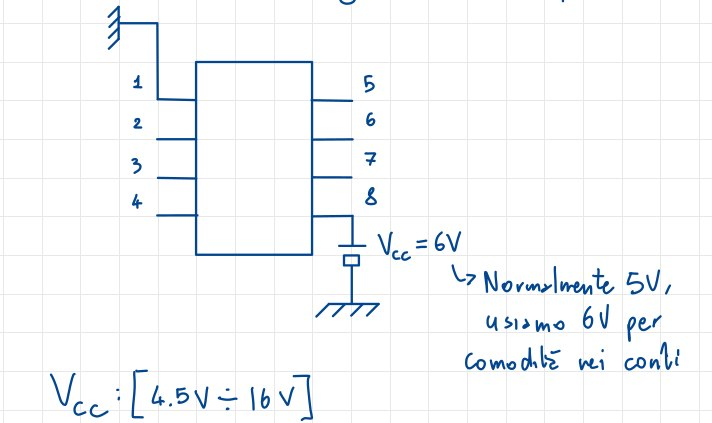 1
2
3
4
5
6
7
8
Vcc = 6V
↳ Normalmente 5V,
usiamo 6V per
comodità nei conti
Vcc : [4.5V ÷ 16V]